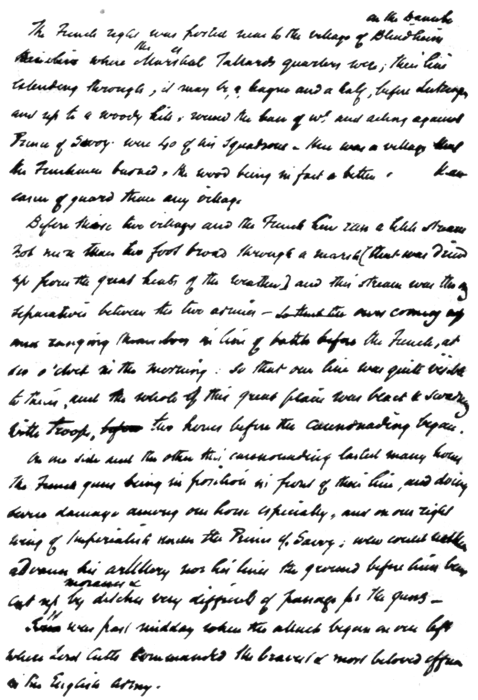 on the Danube
The French right was posted near to the village of Blindheim
where the Marshal Tallard's quarters were; their line
extending through, it may be a league and a half, before Lutzingen
and up to a woody hill, round the base of wh. and acting against
Prince of Savoy were 40 of his Squadrons. Here was a village that
the Frenchmen burned, the wood being in fact a better
cover & guard than any village.
Before these two villages and the French line ran a little stream
not more than two foot broad through a marsh (that was dried
up from the great heats of the weather) and this stream was the
separation between the two armies — ours coming up
and ranging themselves in line of battle before the French, at
six o'clock in the morning: so that our line was quite visible
to theirs, and the whole of this great plain was black & swarming
with troops, before two hours before the cannonading began.
On one side and the other this cannonading lasted many hours
the French guns being in position in front of their line, and doing
severe damage among our horse especially, and on our right
wing of Imperialists under the Prince of Savoy; who could neither
advance his artillery nor his lines the ground before him being
morasses &
cut up by ditches very difficult of passage for the guns —
It was past midday when the attack began on our left
where Lord Cutts commanded the bravest & most beloved officer
in the English Army.